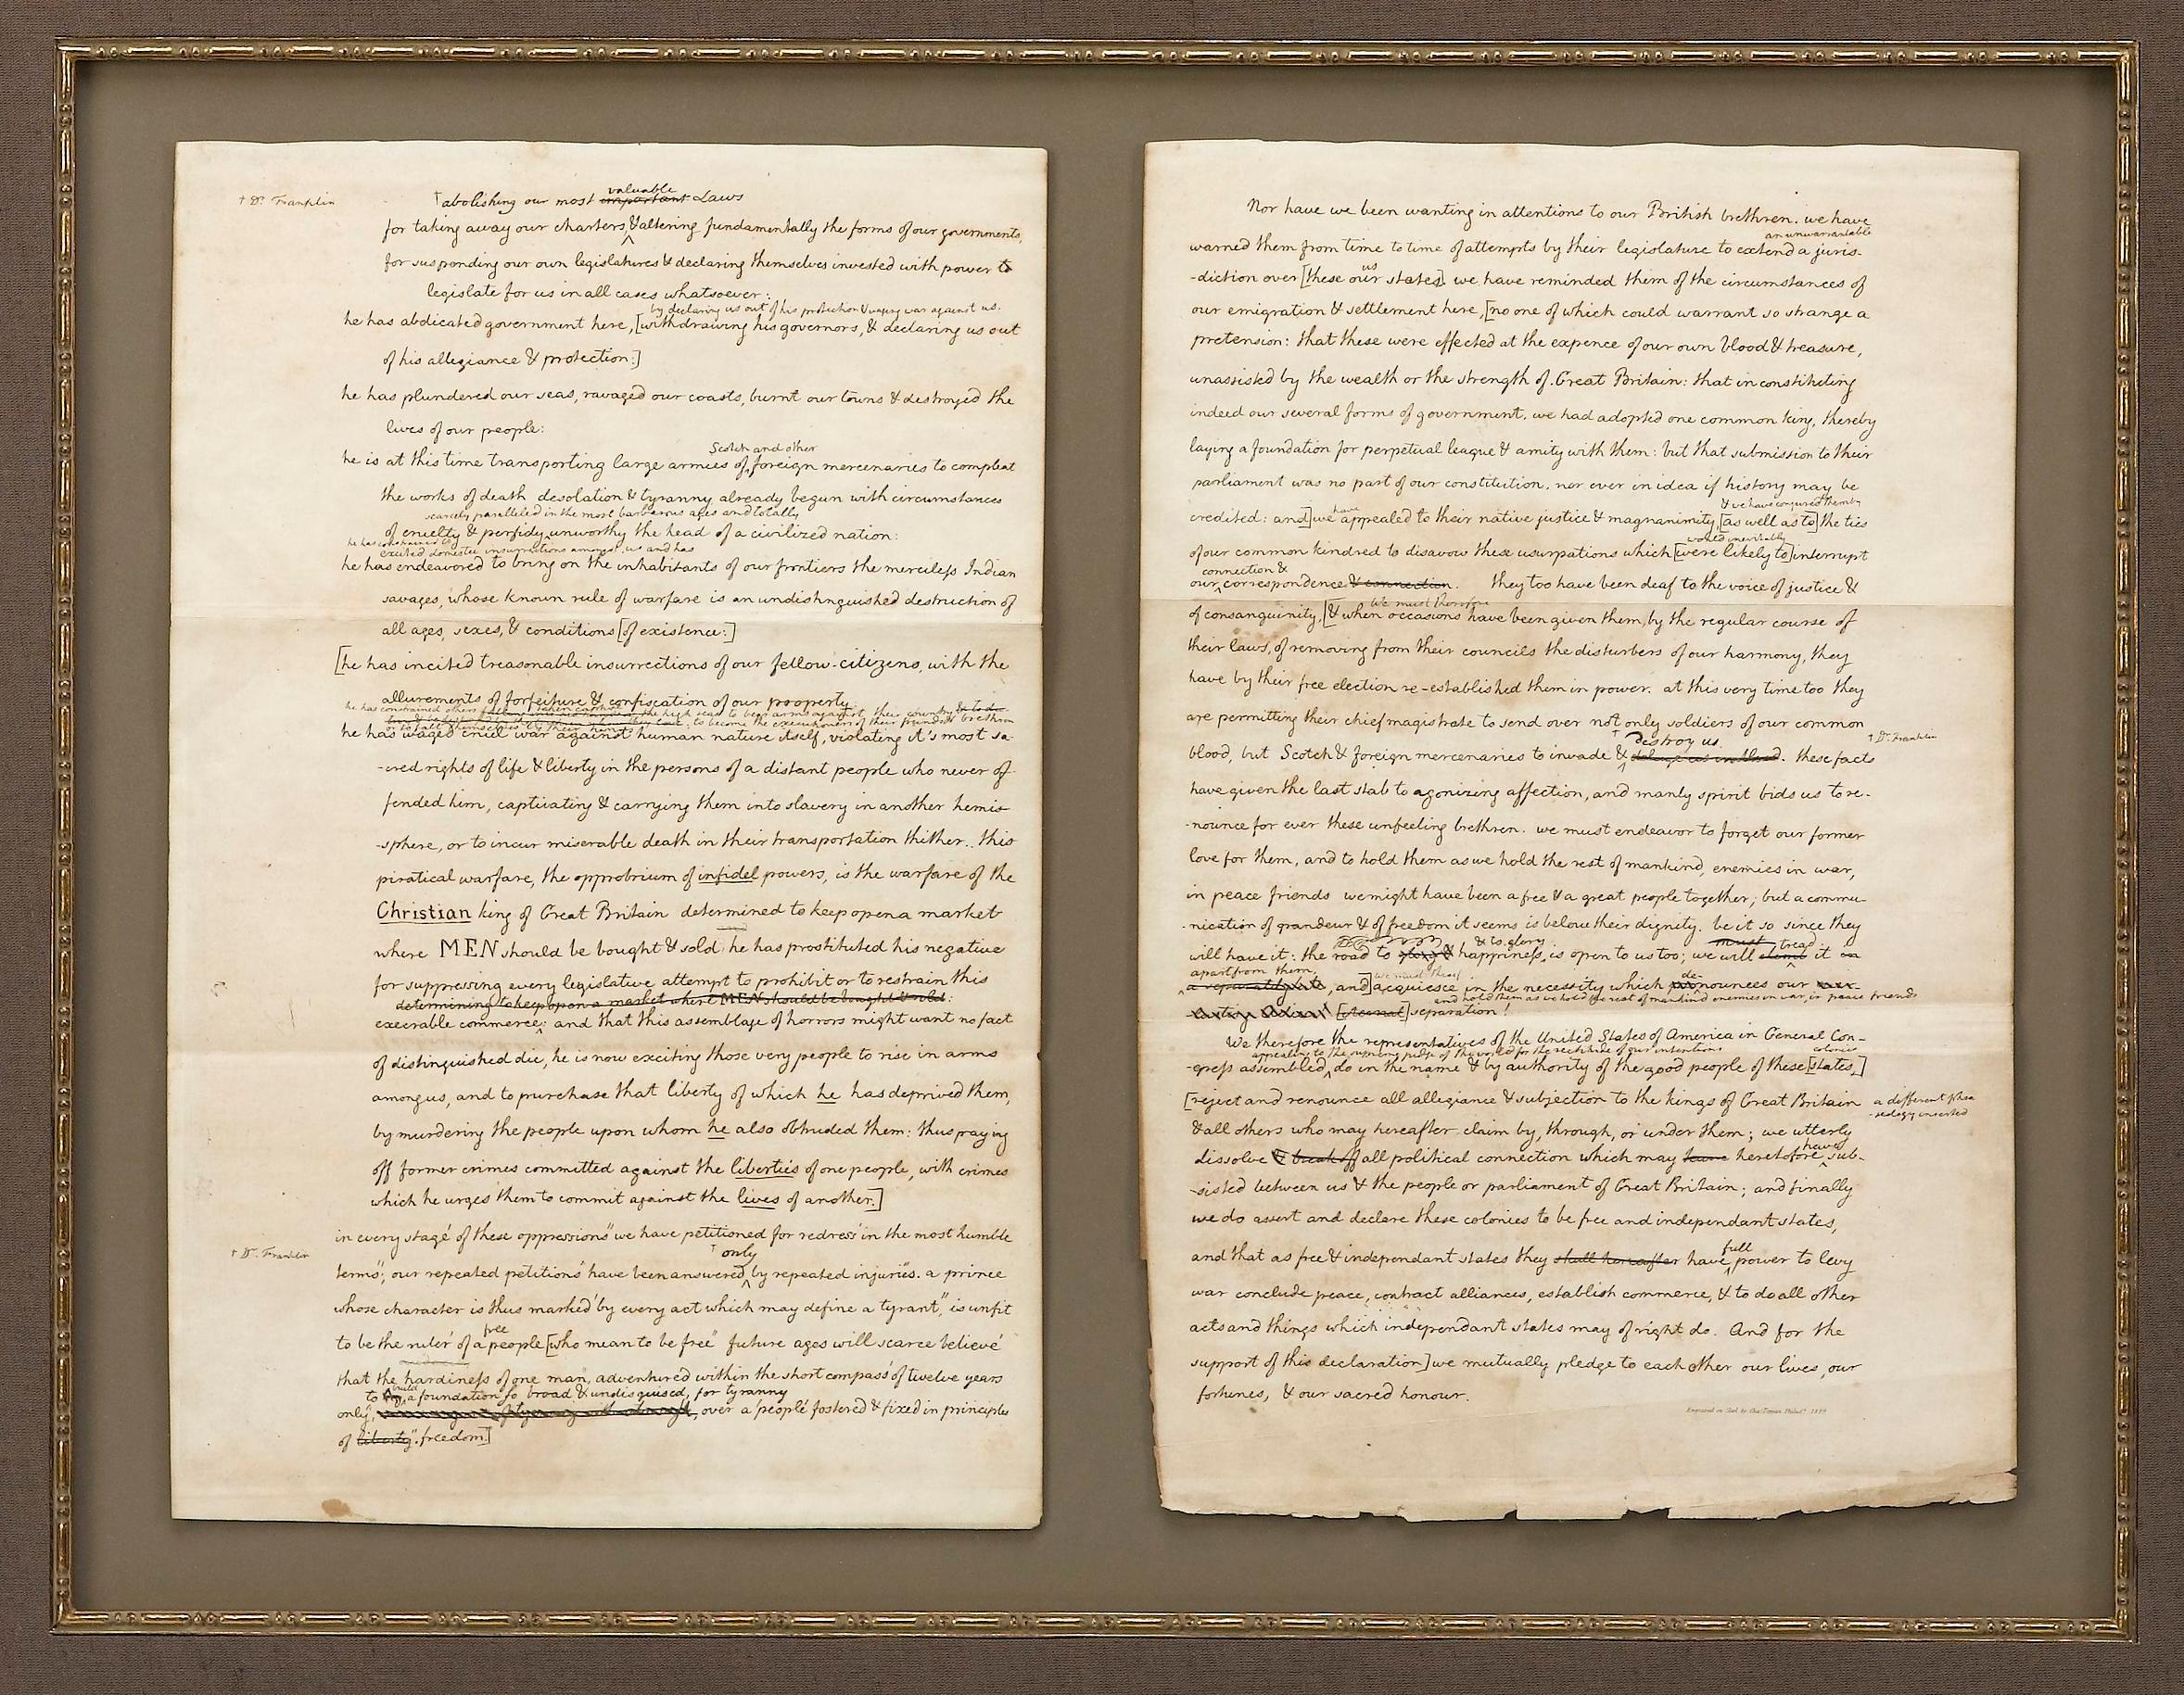 † Dr. Franklin
valuable
† abolishing our most important Laws
for taking away our charters, & altering fundamentally the forms of our governments,
for suspending our own legislatures & declaring themselves invested with power to
legislate for us in all cases whatsoever:
by declaring us out of his protection & waging war against us.
he has abdicated government here, [withdrawing his governors, & declaring us out
of his allegiance & protection:]
he has plundered our seas, ravaged our coasts, burnt our towns & destroyed the
lives of our people:
Scotch and other
he is at this time transporting large armies of foreign mercenaries to compleat
the works of death desolation & tyranny already begun with circumstances
scarcely paralleled in the most barbarous ages and totally
of cruelty & perfidy unworthy the head of a civilized nation:
excited domestic insurrections amongst us and has
he has endeavored to bring on the inhabitants of our frontiers the merciless Indian
savages, whose known rule of warfare is an undistinguished destruction of
all ages, sexes, & conditions [of existence:]
[he has incited treasonable insurrections of our fellow-citizens, with the
allurements of forfeiture & confiscation of our property
he has constrained others taken captives on the high seas to bear arms against their country
to become the executioners of their friends & brethren
or to fall themselves by their hands
he has waged cruel war against human nature itself, violating it's most sa-
-cred rights of life & liberty in the persons of a distant people who never of-
fended him, captivating & carrying them into slavery in another hemis-
-sphere, or to incur miserable death in their transportation thither. this
piratical warfare, the opprobrium of infidel powers, is the warfare of the
Christian king of Great Britain determined to keep open a market
where MEN should be bought & sold he has prostituted his negative
for suppressing every legislative attempt to prohibit or to restrain this
determining to keep open a market where MEN should be bought & sold:
execrable commerce: and that this assemblage of horrors might want no fact
of distinguished die, he is now exciting those very people to rise in arms
among us, and to purchase that liberty of which he has deprived them,
by murdering the people upon whom he also obtruded them: thus paying
off former crimes committed against the liberties of one people, with crimes
which he urges them to commit against the lives of another.]
in every stage of these oppressions we have petitioned for redress in the most humble
† Dr. Franklin
† only
terms; our repeated petitions have been answered by repeated injuries. a prince
whose character is thus marked by every act which may define a tyrant, is unfit
free
to be the ruler of a people [who mean to be free future ages will scarce believe
that the hardiness of one man, adventured within the short compass of twelve years
build
to a foundation so broad & undisguised, for tyranny
only, over a people fostered & fixed in principles
of liberty freedom]
Nor have we been wanting in attentions to our British brethren. we have
an unwarrantable
warned them from time to time of attempts by their legislature to extend a juris-
us
-diction over [these our states] we have reminded them of the circumstances of
our emigration & settlement here, [no one of which could warrant so strange a
pretension: that these were effected at the expence of our own blood & treasure,
unassisted by the wealth or the strength of Great Britain: that in constituting
indeed our several forms of government, we had adopted one common king, thereby
laying a foundation for perpetual league & amity with them: but that submission to their
parliament was no part of our constitution, nor ever in idea if history may be
& we have conjured them by
have
credited: and] we appealed to their native justice & magnanimity, [as well as to] the ties
would inevitably
of our common kindred to disavow these usurpations which [were likely to] interrupt
connection &
our correspondence & connection. they too have been deaf to the voice of justice &
We must therefore
of consanguinity, [& when occasions have been given them, by the regular course of
their laws, of removing from their councils the disturbers of our harmony, they
have by their free election re-established them in power. at this very time too they
are permitting their chief magistrate to send over not only soldiers of our common
† destroy us
† Dr. Franklin
blood, but Scotch & foreign mercenaries to invade & deluge us in blood. these facts
have given the last stab to agonizing affection, and manly spirit bids us to re-
-nounce for ever these unfeeling brethren. we must endeavor to forget our former
love for them, and to hold them as we hold the rest of mankind, enemies in war,
in peace friends we might have been a free & a great people together; but a commu-
-nication of grandeur & of freedom it seems is below their dignity. be it so since they
& to glory
must tread
will have it: the road to glory & happiness is open to us too; we will climb it in
apart from them,
we must
de-
a separately state, and] acquiesce in the necessity which pronounces our
and hold them as we hold the rest of mankind enemies in war, in peace friends
[eternal] separation!
We therefore the representatives of the United States of America in General Con-
appealing to the supreme judge of the world for the rectitude of our intentions
colonies
-gress assembled, do in the name & by authority of the good people of these [states,]
[reject and renounce all allegiance & subjection to the kings of Great Britain
a different phra
-seology inserted
& all others who may hereafter claim by, through, or under them; we utterly
have
dissolve & break off all political connection which may have heretofore sub-
-sisted between us & the people or parliament of Great Britain; and finally
we do assert and declare these colonies to be free and independant states,
full
and that as free & independant states they shall hereafter have power to levy
war conclude peace, contract alliances, establish commerce, & to do all other
acts and things which independant states may of right do. And for the
support of this declaration] we mutually pledge to each other our lives, our
fortunes, & our sacred honour.